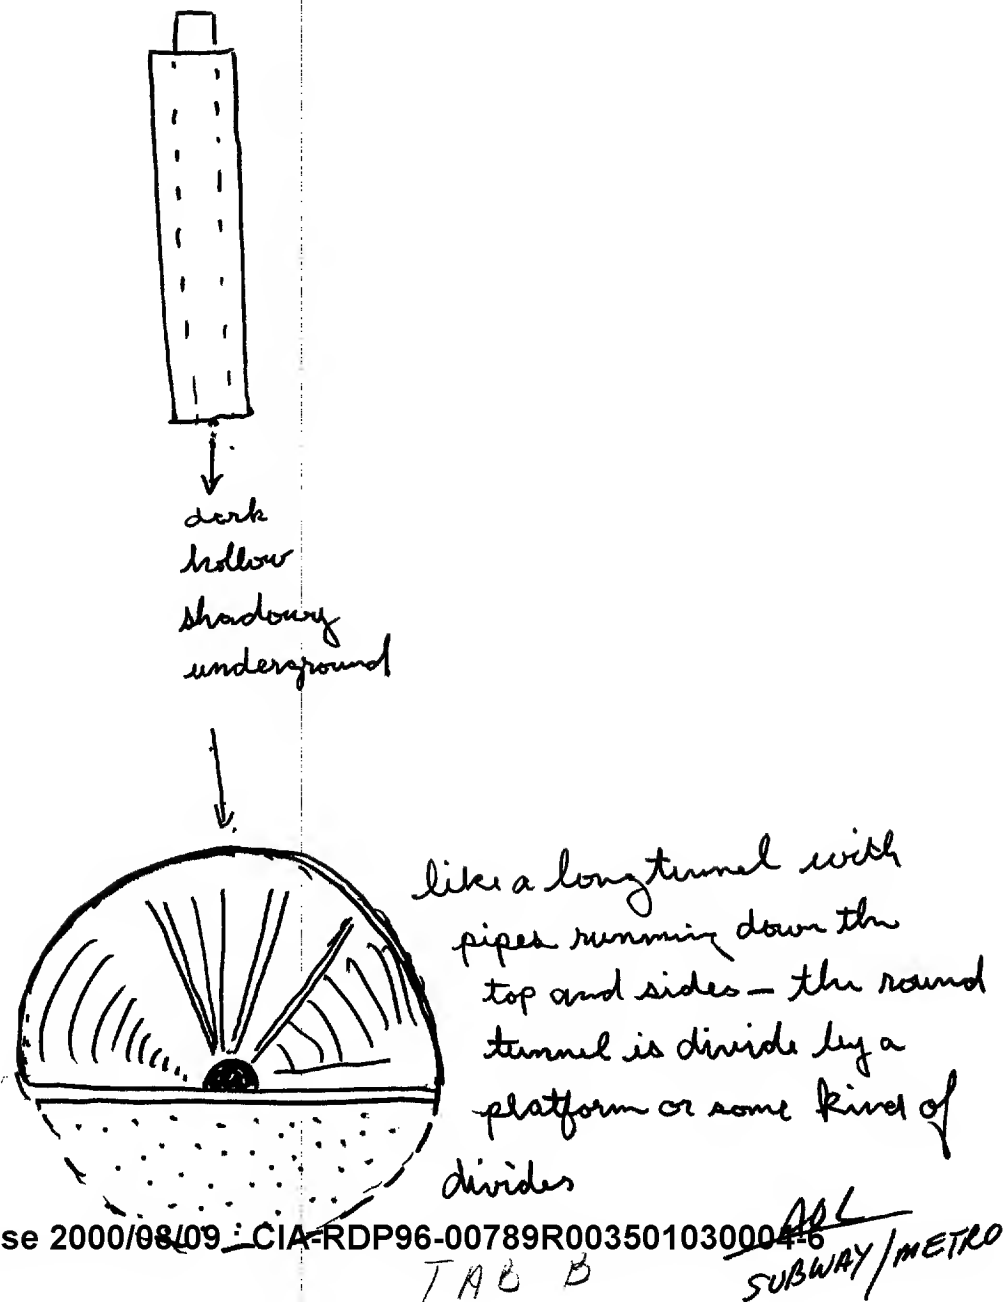 dark
hollow
shadowy
underground
like a long tunnel with
pipes running down the
top and sides — the round
tunnel is divide by a
platform or some kind of
divides
se 2000/08/09 : CIA-RDP96-00789R003501030004-6
AOL
SUBWAY/METRO
TAB B